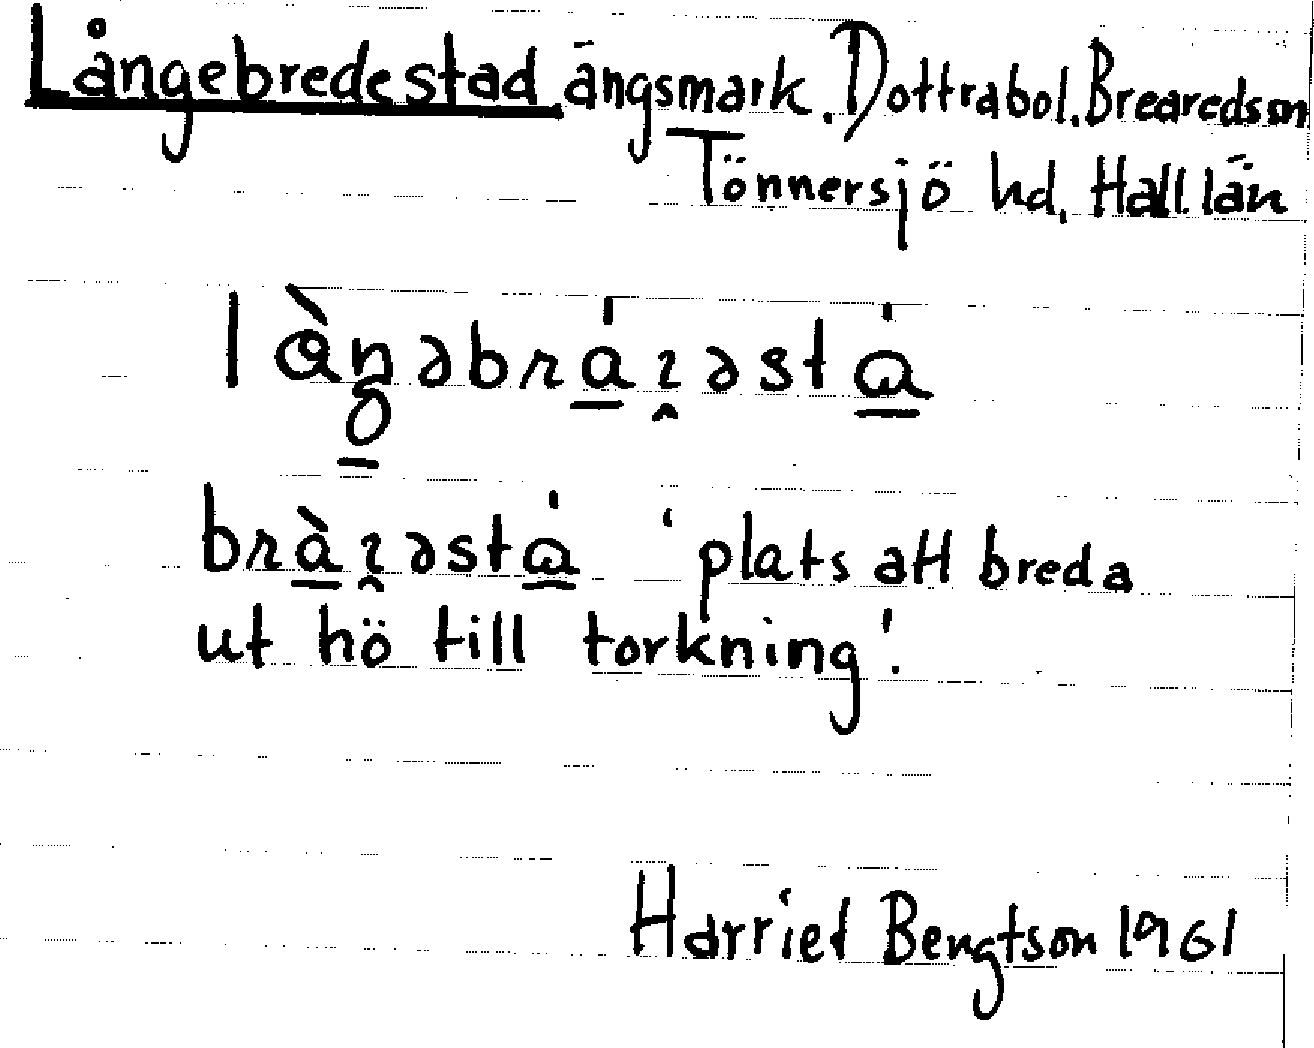 Långebredestad ängsmark. Dottrabol. Breareds sn
Tönnersjö hd, Hall. län
làŋəbráɿəstá
bràɿəstá 'plats att breda
ut hö till torkning'.
Harriet Bengtson 1961